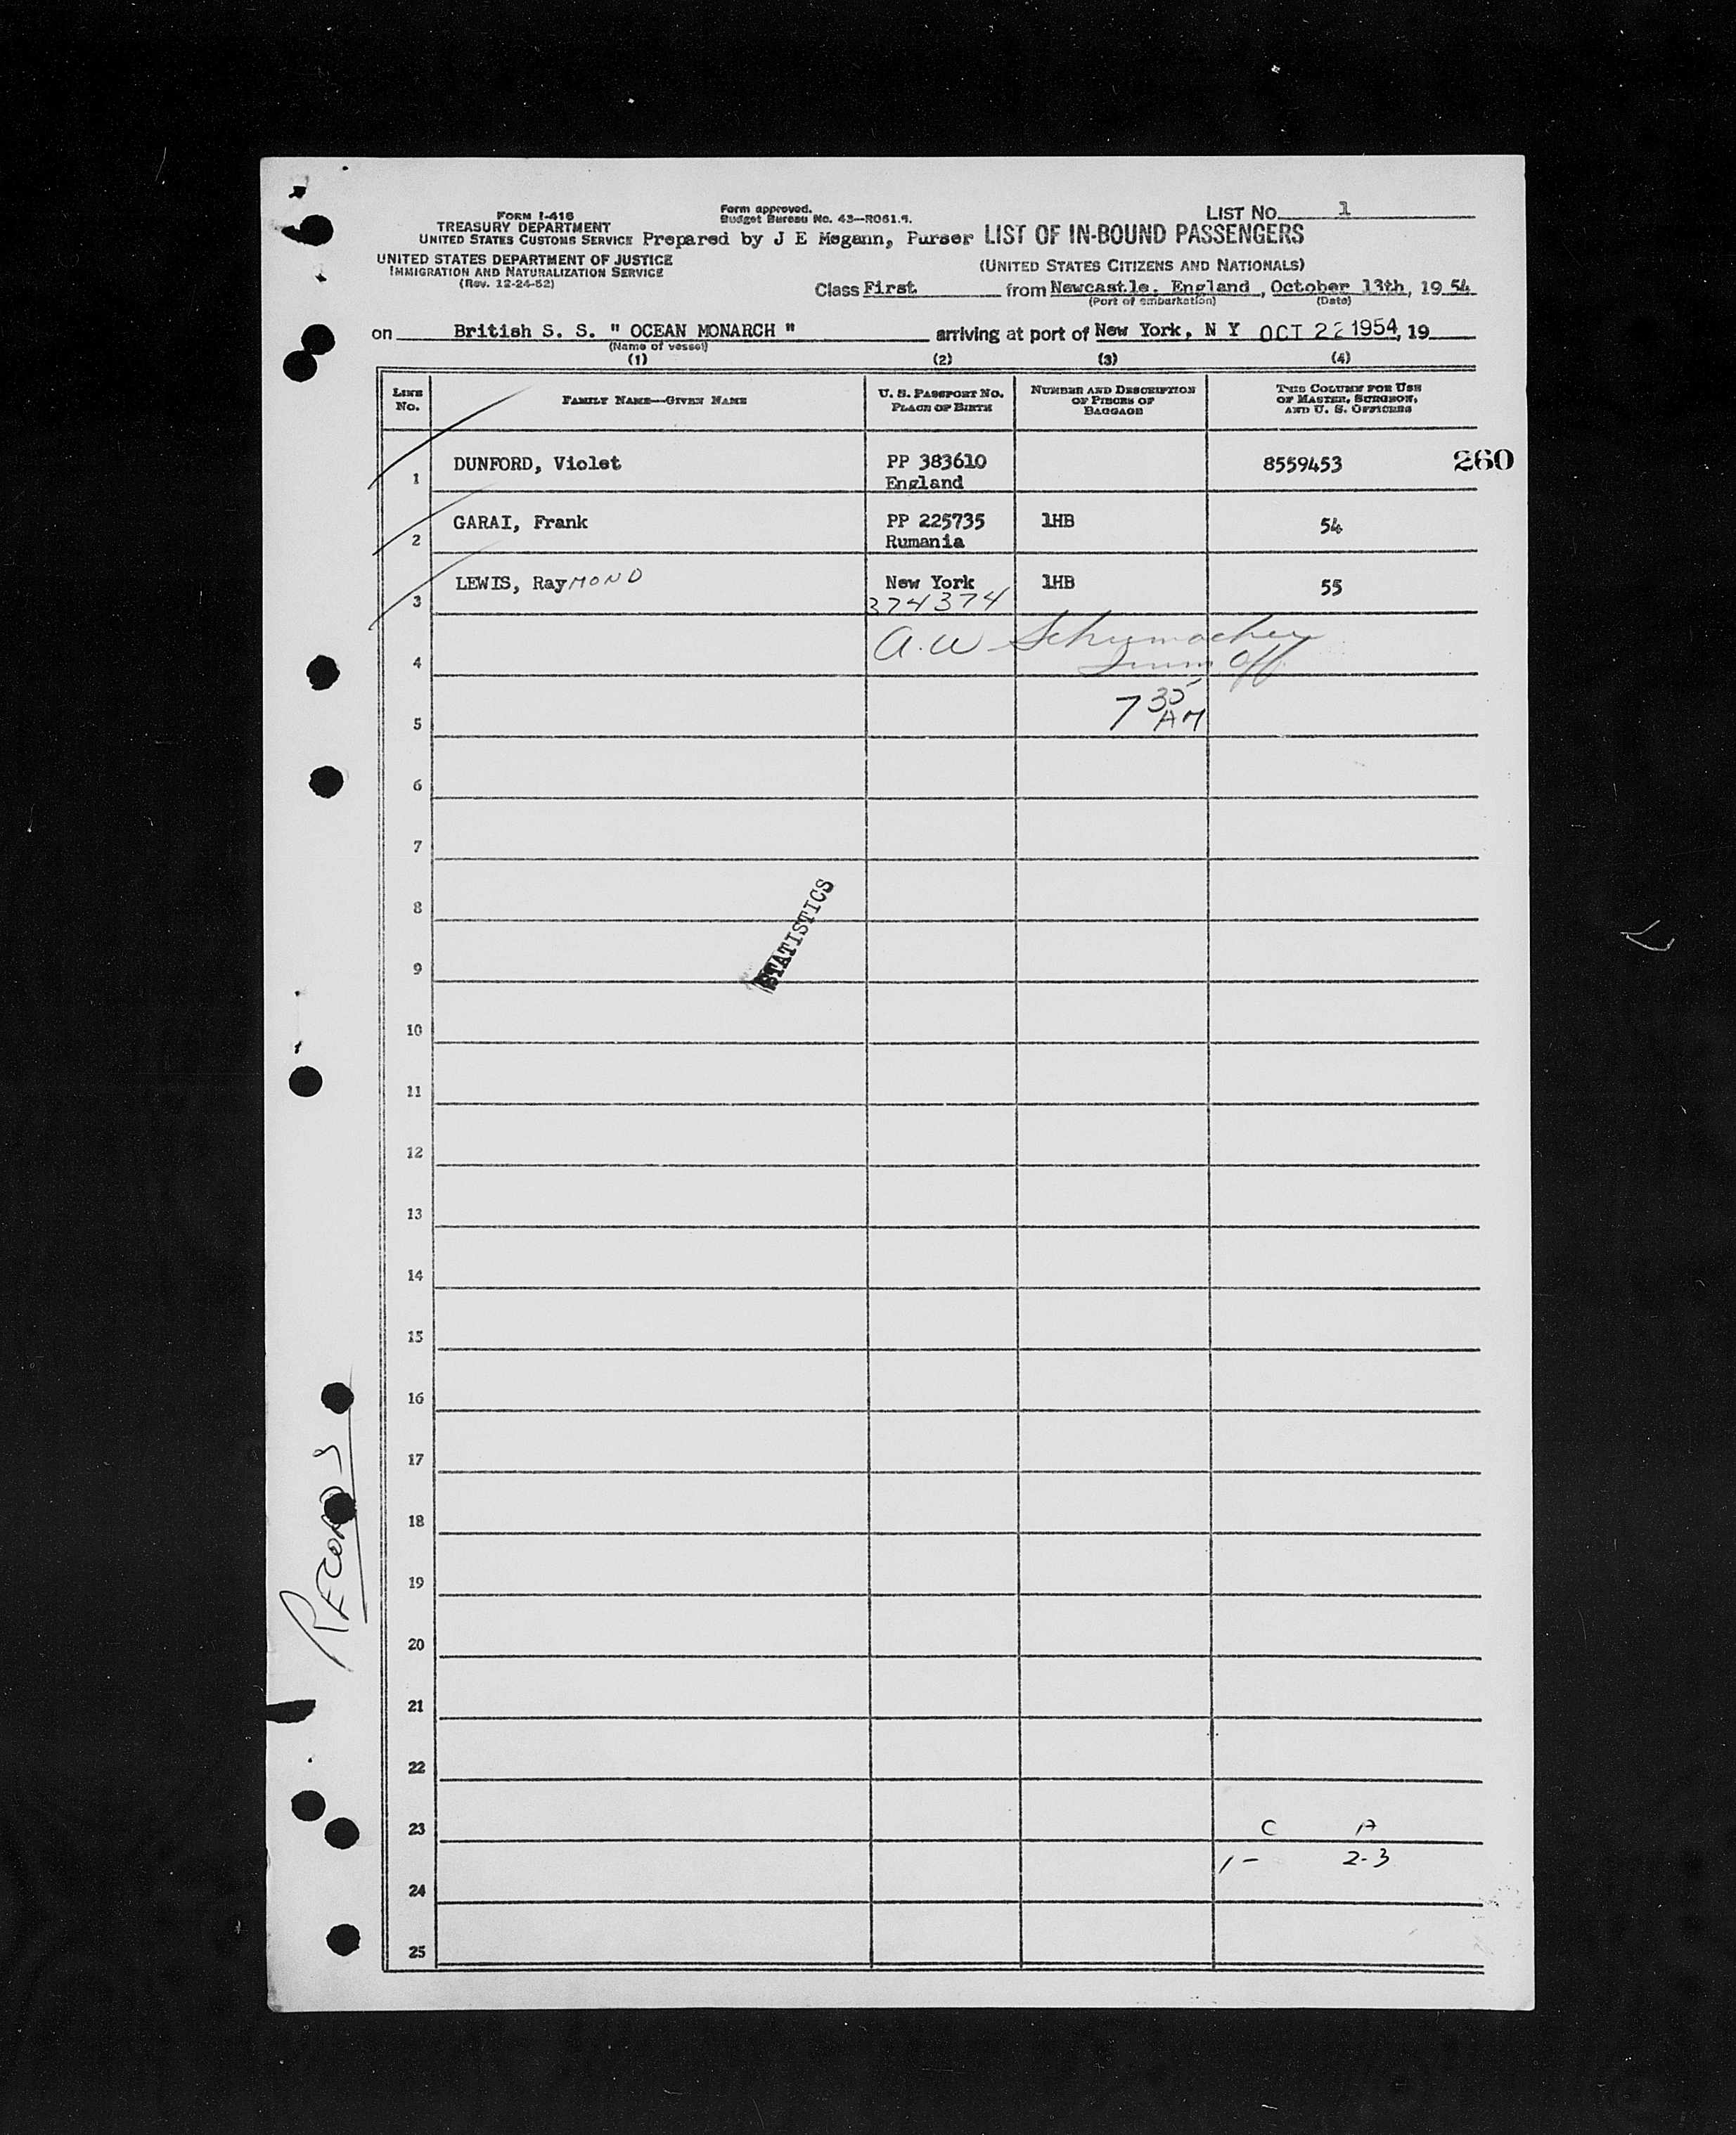 FORM I-416
TREASURY DEPARTMENT
UNITED STATES CUSTOMS SERVICE
UNITED STATES DEPARTMENT OF JUSTICE
IMMIGRATION AND NATURALIZATION SERVICE
(Rev. 12-24-52)
Form approved.
Budget Bureau No. 43—R061.
LIST NO. 1
Prepared by J E Megann, Purser LIST OF IN-BOUND PASSENGERS
(UNITED STATES CITIZENS AND NATIONALS)
Class First from Newcastle, England, October 13th, 19 54
(Port of embarkation) (Date)
on British S. S. " OCEAN MONARCH " arriving at port of New York, N Y OCT 22 1954, 19
(Name of vessel)
(1) (2) (3) (4)
LINE No. FAMILY NAME—GIVEN NAME U. S. PASSPORT NO. PLACE OF BIRTH NUMBER AND DESCRIPTION OF PIECES OF BAGGAGE THIS COLUMN FOR USE OF MASTER, SURGEON, AND U. S. OFFICERS
1 DUNFORD, Violet PP 383610 England 8559453 260
2 GARAI, Frank PP 225735 Rumania 1HB 54
3 LEWIS, RayMOND New York 374374 1HB 55
4 A. W Schumacher
Imm Off
5 7 35 AM
6
7
8
STATISTICS
9
10
11
12
13
14
15
16
17
18
RECORDS
19
20
21
22
23 C A
24 1- 2-3
25